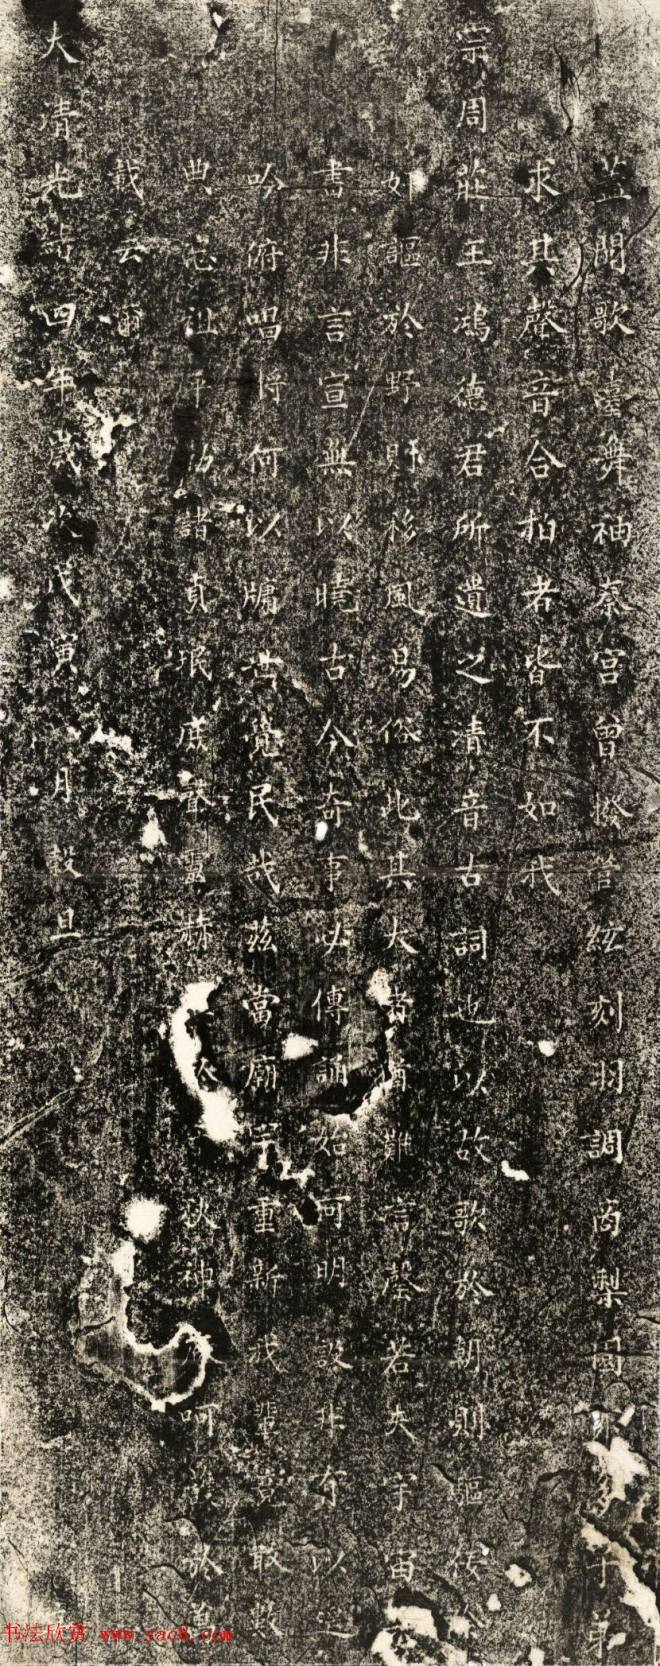 蓋聞歌臺舞袖秦宮曾撥管絃刻羽調商梨園子弟
求其聲音合拍者皆不如我
宗周莊王鴻德君所遺之清音古詞也以故歌於朝則謳
如謳於野時移風易俗此其大者猶難言罄若夫宇宙
書非言宣無以曉古今奇事必傳誦始可明設非有以
吟俯唱將何以牖世覺民哉茲當廟宇重新我輩竟敢數
典忘祖乎勒諸貞珉庶聲靈赫神呵於
載云爾
大清光緒四年歲次戊寅 月穀旦
书法欣赏 www.yac8.com